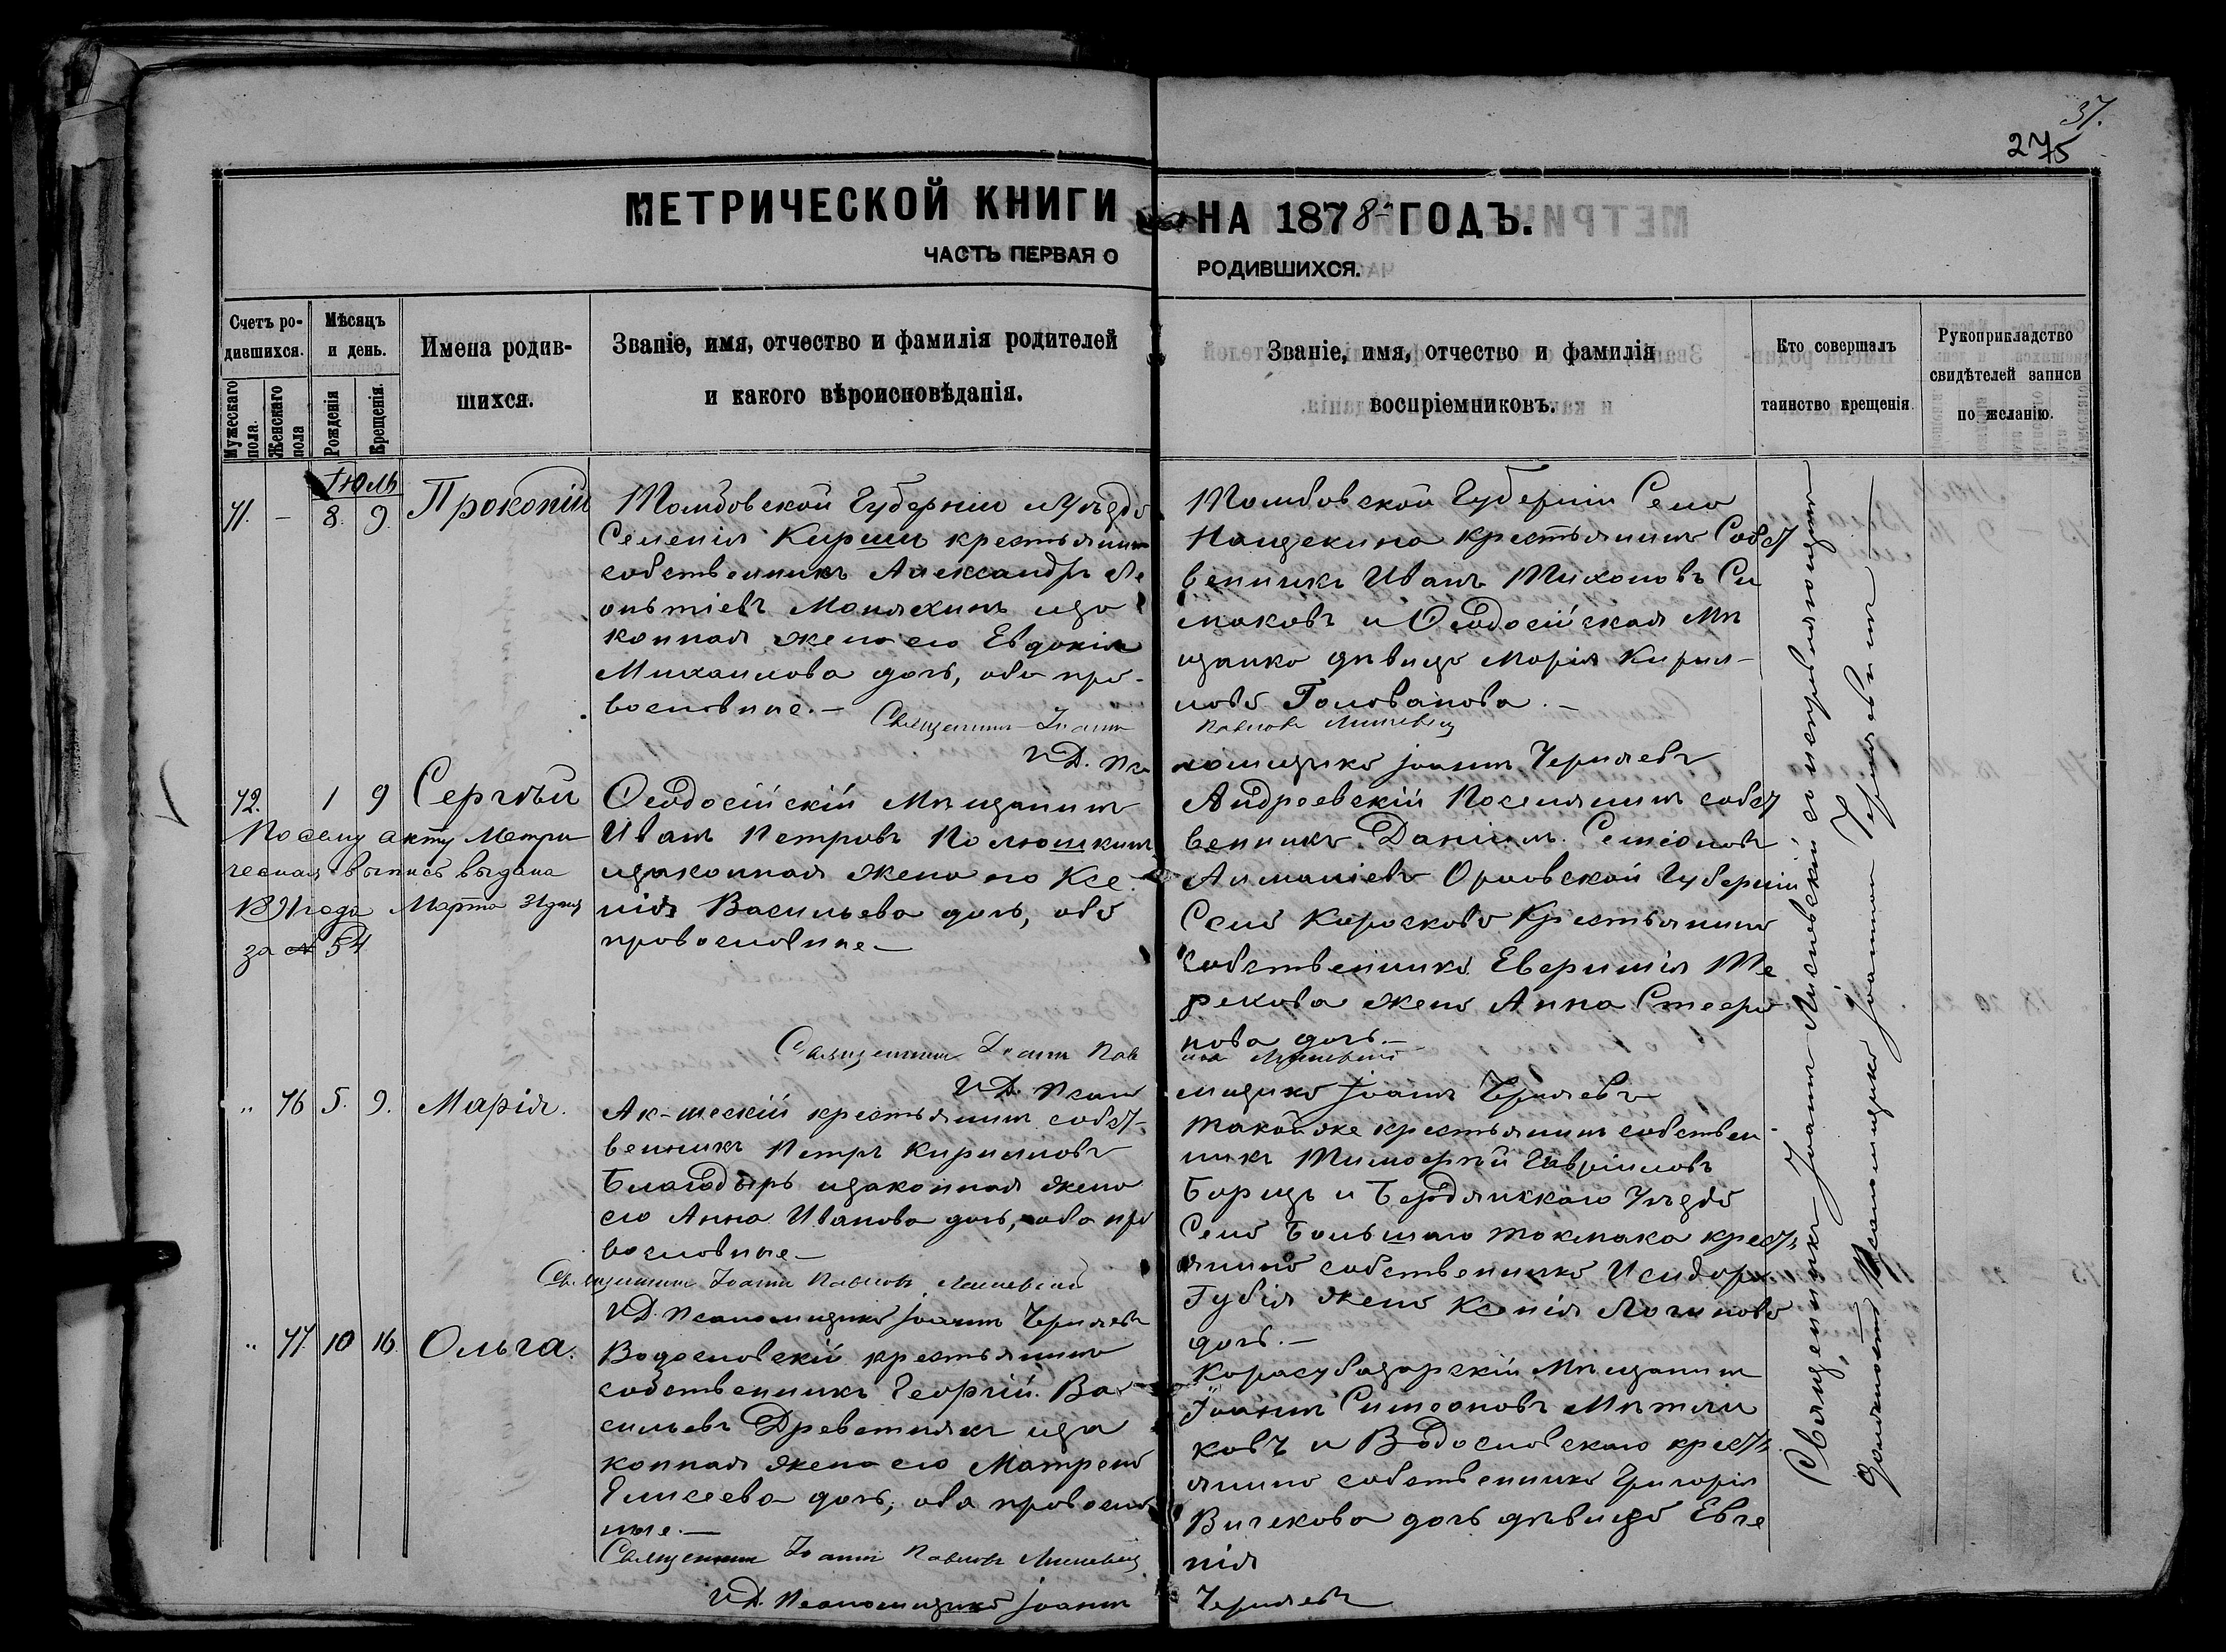 37.
275
МЕТРИЧЕСКОЙ КНИГИ НА 1878й ГОДЪ.
ЧАСТЬ ПЕРВАЯ О РОДИВШИХСЯ.
Счетъ ро-
дившихся.
Мужескаго пола.
Женскаго пола
Мѣсяцъ
и день.
Рожденія
Крещенія.
Имена родив-
шихся.
Званіе, имя, отчество и фамилія родителей
и какого вѣроисповѣданія.
Званіе, имя, отчество и фамилія
воспріемниковъ.
Кто совершалъ
таинство крещенія.
Рукоприкладство
свидѣтелей записи
по желанію.
Іюль
71. – 8. 9. Прокопій
Тамбовской Губерніи и Уѣзда
Селенія Кирши крестьянинъ
собственникъ Александръ Ле
онтіевъ Манякинъ и за
конная жена его Евдокія
Михаилова дочь, оба пра-
вославные.–
Священникъ Іоаннъ Павловъ
И.Д. Псаломщика Іоаннъ Черняевъ
Тамбовской Губерніи Села
Пащекина крестьянинъ Собст
венникъ Иванъ Тихоновъ Си
маковъ и Ѳеодосійская Мѣ
щанка дѣвица Марія Кирил-
лова Голованова.–
72. 1 9 Сергѣй
По сему акту Метри
ческая выпись выдана
1891 года Марта 31 дня
за № 54
Ѳеодосійскій Мѣщанинъ
Иванъ Петровъ Полюшкинъ
и законная жена его Ксе
нія Васильева дочь, оба
православные–
Священникъ Іоаннъ Пав
И.Д. Псаломщика Іоаннъ Черняевъ
Андреевскій Поселянинъ собст
венникъ Даніилъ Симеоновъ
Ананіевъ Орловской Губерніи
Села Кароскова Крестьянина
собственника Евфимія Те
рехова жена Анна Стефа
нова дочь.–
" 76 5. 9. Марія.
Ак-шеекій крестьянинъ собст-
венникъ Петръ Кирилловъ
Благодырь и законная жена
его Анна Иванова дочь, оба пра
вославные–
Священникъ Іоаннъ Павловъ
И.Д. Псаломщика Іоаннъ Черняевъ
такой же крестьянинъ собствен-
никъ Тимоѳей Гавріиловъ
Борщъ и Бердянскаго Уѣзда
Села Большаго Токмака кресть
янина собственника Исидора
Губія жена Ксенія Логинова
дочь.–
" 77. 10 16. Ольга.
Водославскій крестьянинъ
собственникъ Георгій Ва-
сильевъ Древетнякъ и за
конная жена его Матрена
Елисеева дочь, оба православ
ные.–
Священникъ Іоаннъ Павловъ
И.Д. Псаломщика Іоаннъ Черняевъ
Карасубазарскій Мѣщанинъ
Іоаннъ Симеоновъ Мѣтли
ковъ и Водославскаго кресть
янина собственника Григорія
Вичекова дочь дѣвица Евге
нія
Священникъ Іоаннъ съ исправляющимъ
должность Псаломщика Іоанномъ Черняевымъ